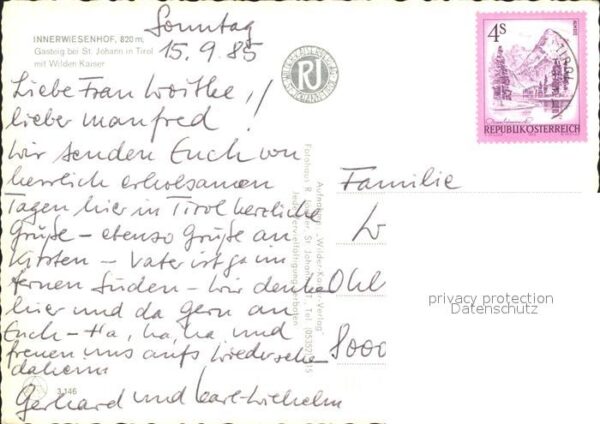 INNERWIESENHOF, 820 m,
Gasteig bei St. Johann in Tirol
mit Wildem Kaiser
Sonntag
15.9.85
Liebe Frau Woithe,
lieber Manfred!
Wir senden Euch von
herrlich erholsamen
Tagen hier in Tirol herzliche
Grüße – ebenso Grüße an
Kirsten – Vater ist ganz im
fernen Süden – wir denken
hier und da gern an
Euch – Ha, ha, ha und
freuen uns aufs Wiedersehen
daheim
Gerhard und Carl-Wilhelm
3.146
RJ
4S
REPUBLIK ÖSTERREICH
Familie
W
Ohl
8000
privacy protection
Datenschutz